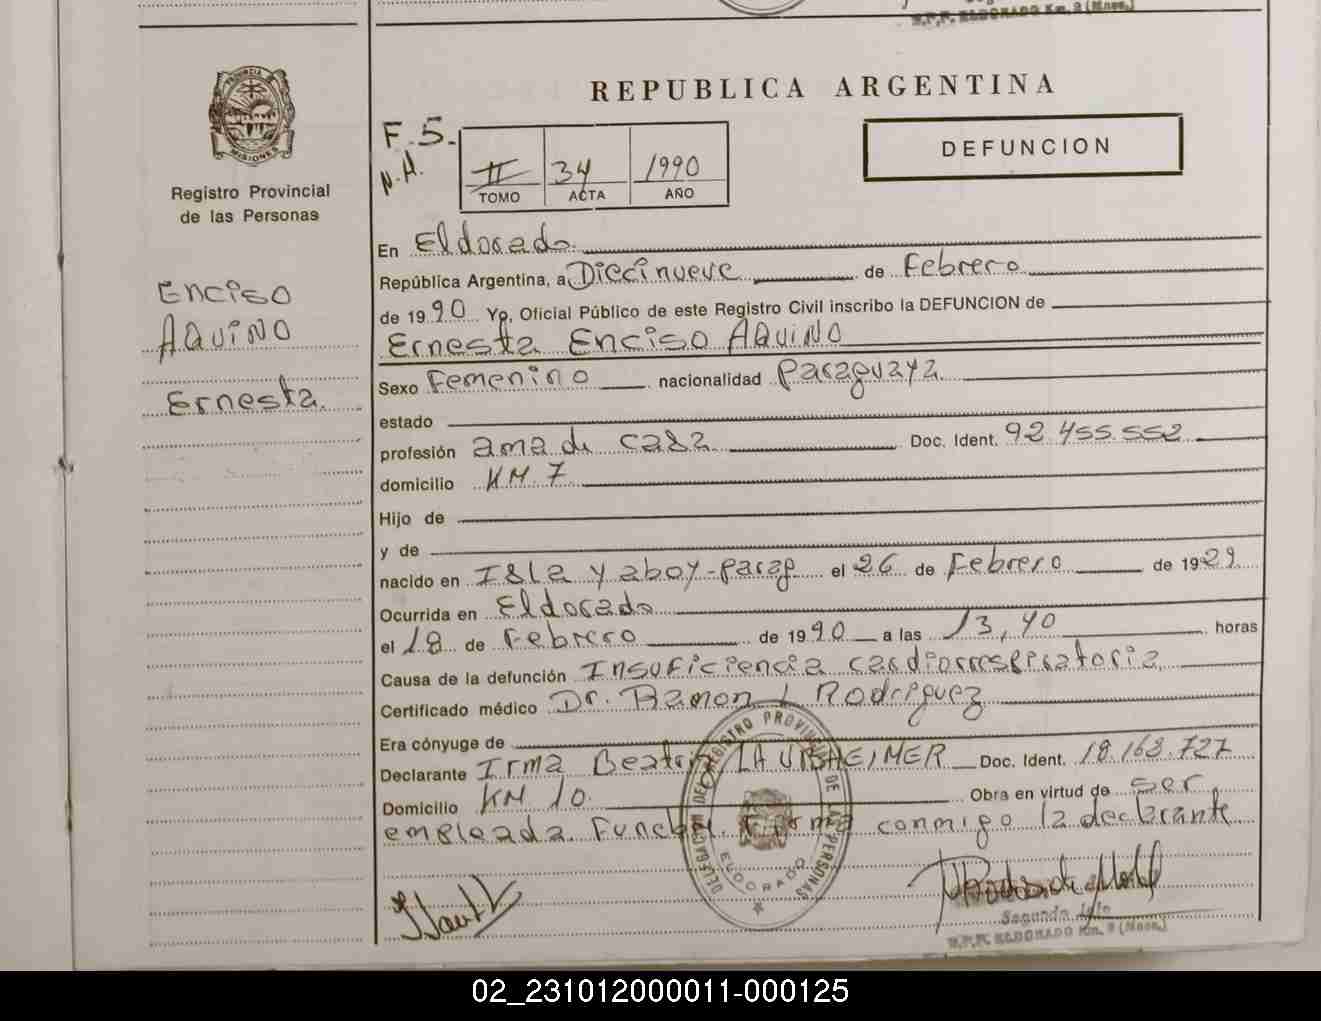 R.P.P. ELDORADO Km. 9 (Mnes.)
PROVINCIA DE MISIONES
Registro Provincial
de las Personas
Enciso
AQuiNO
Ernesta
REPUBLICA ARGENTINA
F.5.
N.A.
II 34 1990
TOMO ACTA AÑO
DEFUNCION
En Eldorado
República Argentina, a Diecinueve de Febrero
de 1990 Yo, Oficial Público de este Registro Civil inscribo la DEFUNCION de
Ernesta Enciso AQuiNO
Sexo Femenino nacionalidad Paraguaya
estado
profesión ama de casa Doc. Ident. 92.455.552
domicilio KM 7
Hijo de
y de
nacido en Isla y aboy-parag el 26 de Febrero de 1929
Ocurrida en Eldorado
el 18 de Febrero de 1990 a las 13,40 horas
Causa de la defunción Insuficiencia cardiorrespiratoria
Certificado médico Dr. Ramon L Rodriguez
Era cónyuge de
Declarante Irma Beatriz Doc. Ident. 18.168.727
Domicilio KM 10 Obra en virtud de ser
empleada Funebr. Firma conmigo la declarante
DELEGACION DEL REGISTRO PROVINCIAL DE LAS PERSONAS
ELDORADO
Segundo Jefe
R.P.P. ELDORADO Km. 9 (Mnes.)
02_231012000011-000125